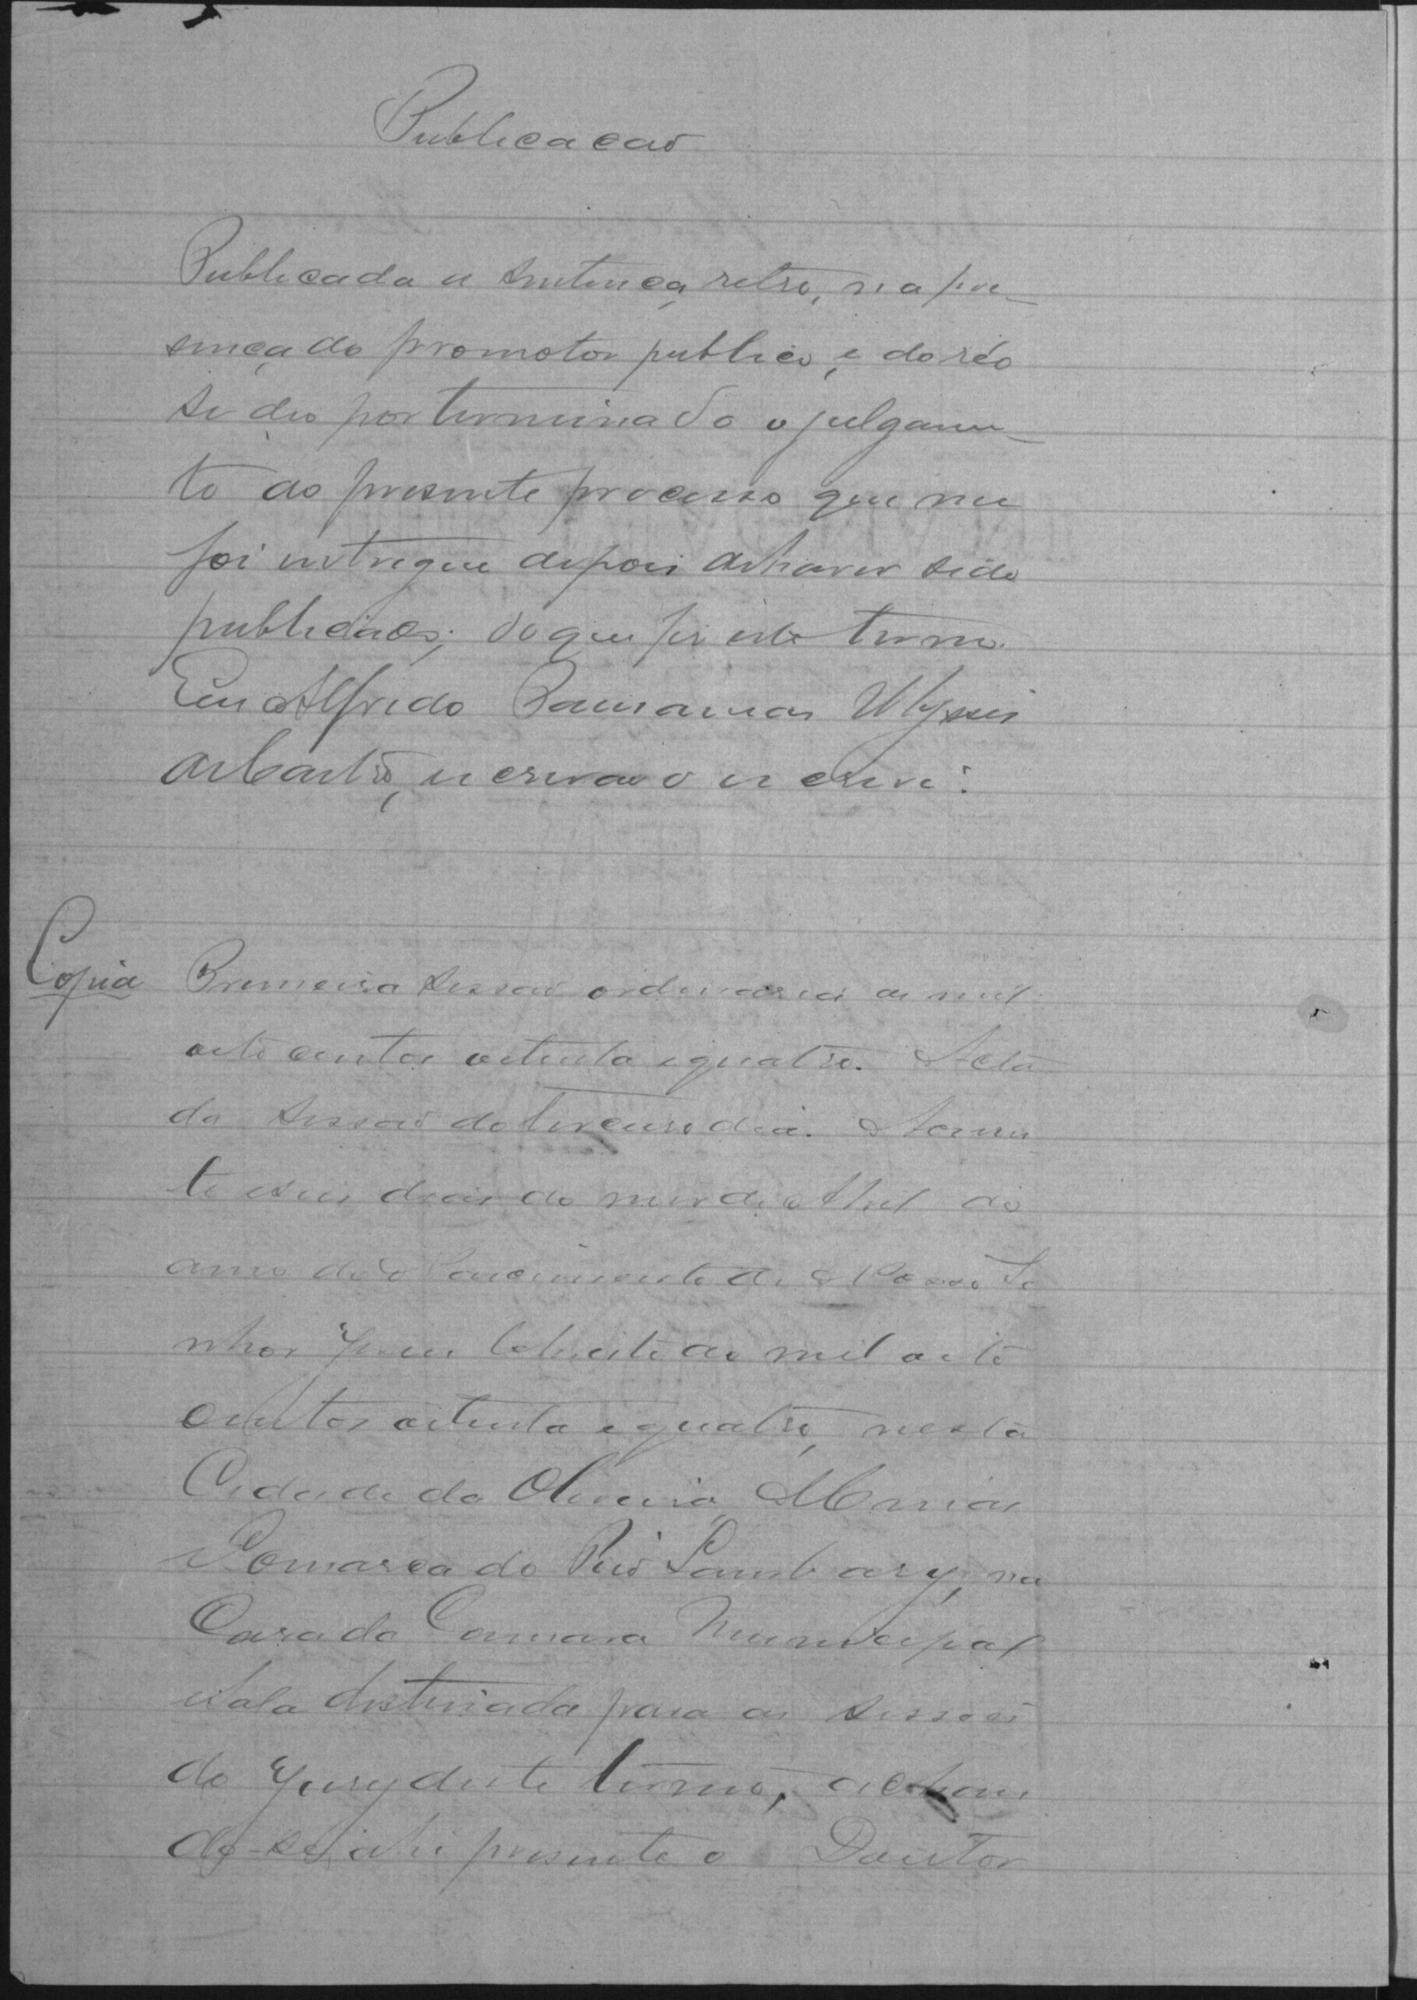 Publicacaõ
Publicada a sentença retro, na pre-
sença do promotor publico, e do réo
se deo por terminado o julgamen-
to do presente processo que me
foi entregue depois de haver sido
publicado; do que fiz este termo.
Eu Alfredo Ulysses
de Castro, escrivaõ o escrevi.
Copia
Premeira sessaõ ordinaria de mil
oito centos oitenta e quatro. Acta
da sessaõ do terceiro dia. Aos vin
te e seis dias do mes de Abril do
anno do Nascimento de Nosso Se
nhor Jesus Christo de mil oito
centos oitenta e quatro, nesta
Cidade da Oliveira, Minas
Comarca do Rio Lambary, na
Casa da Camara Municipal
e sala destinada para as sessoes
do Jury deste termo, achan
do-se ahi presente o Doutor